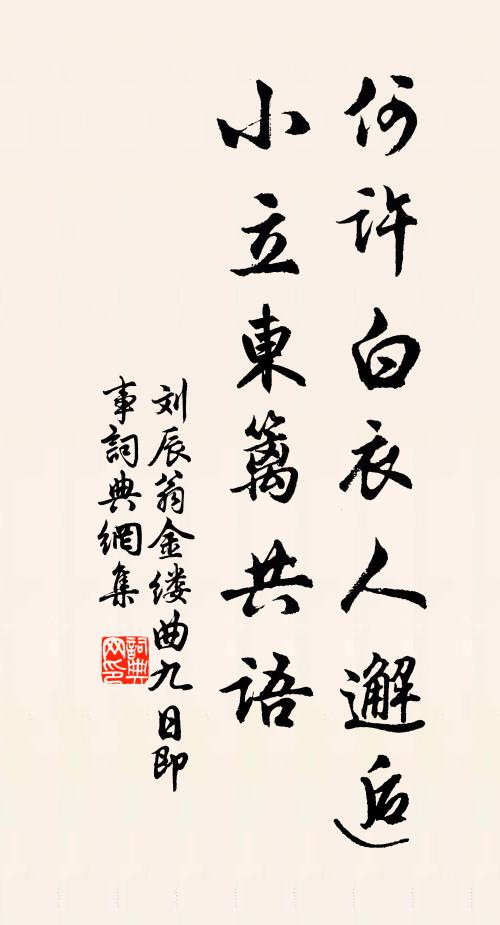 何許白衣人邂逅
小立東籬共語
刘辰翁金缕曲九日即
事詞典網集
詞典
网印